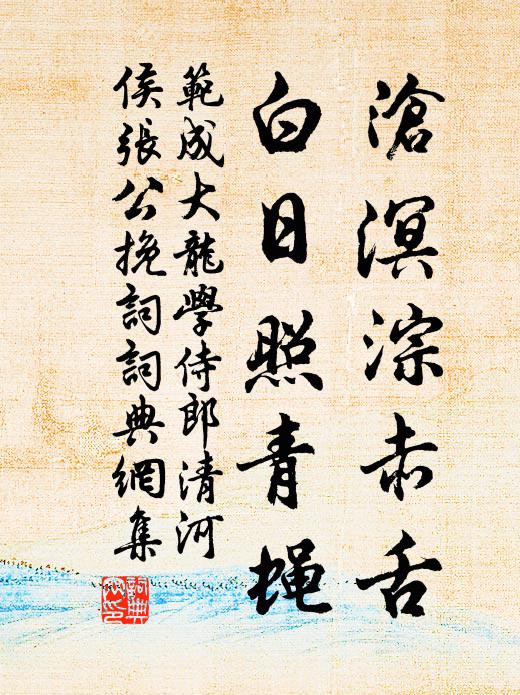 滄溟淙赤舌
白日照青蝇
範成大龍學侍郎清河
侯張公挽詞詞典網集